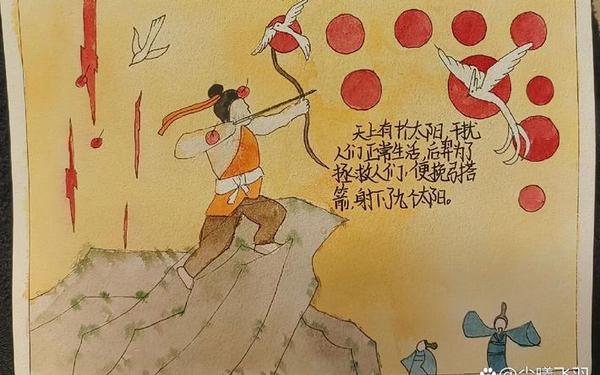 天上有十太阳，干扰
人们正常生活，后羿为了
拯救人们，便挽弓搭
箭，射下了九个太阳。
少曦飞羽